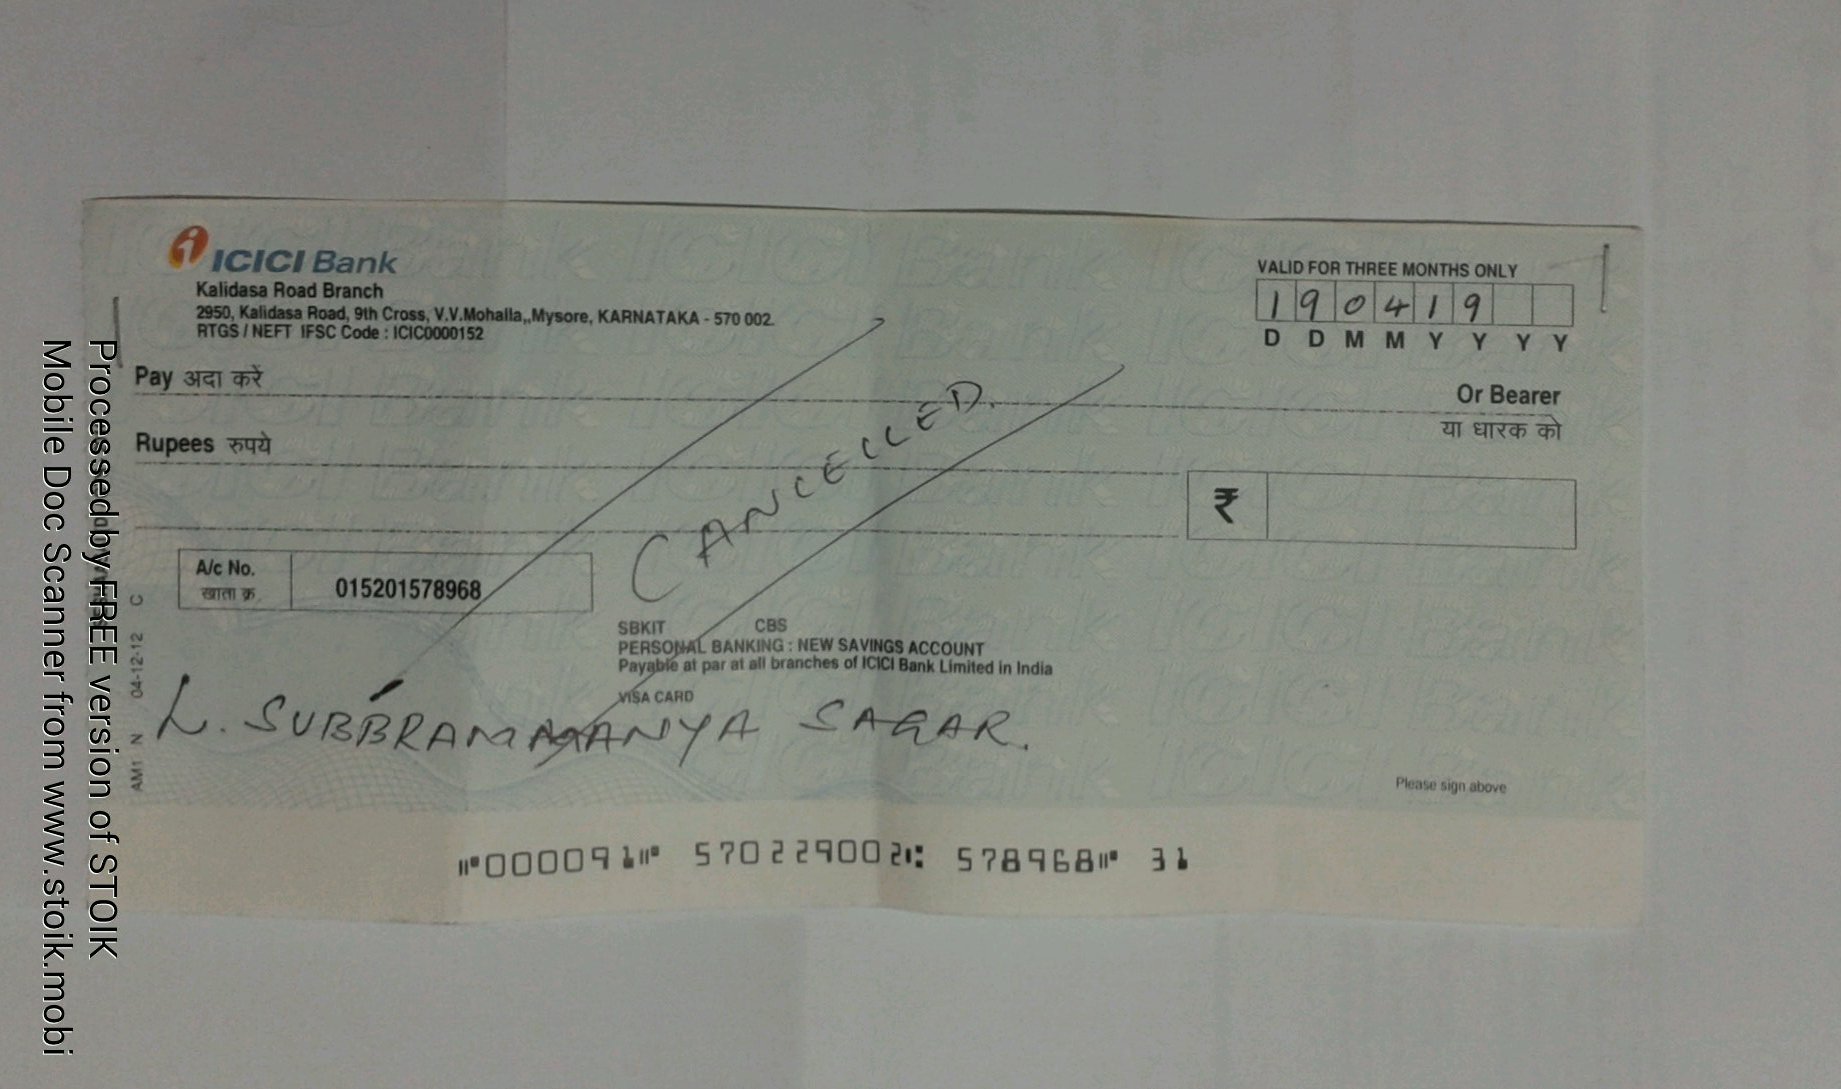 ICICI Bank
Kalidasa Road Branch
2950, Kalidasa Road, 9th Cross, V.V.Mohalla,,Mysore, KARNATAKA - 570 002.
RTGS / NEFT IFSC Code : ICIC0000152
VALID FOR THREE MONTHS ONLY
190419
D D M M Y Y Y Y
Pay अदा करें
Or Bearer
या धारक को
Rupees रुपये
₹
CANCELLED.
A/c No.
खाता क्र.
015201578968
SBKIT CBS
PERSONAL BANKING : NEW SAVINGS ACCOUNT
Payable at par at all branches of ICICI Bank Limited in India
VISA CARD
L. SUBBRAMMANYA SAGAR.
Please sign above
⑈000091⑈ 570229002⑆ 578968⑈ 31
AM1 N 04-12-12 C
Processed by FREE version of STOIK
Mobile Doc Scanner from www.stoik.mobi